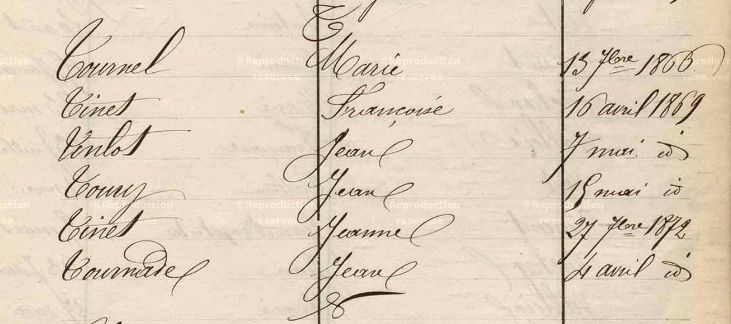 T
Tournel Marie 13 7bre 1866
Tinet Françoise 16 avril 1869
Tinlot Jean 7 mai id
Toury Jean 15 mai id
Tinet Jeanne 27 7bre 1872
Tournade Jean 4 avril id